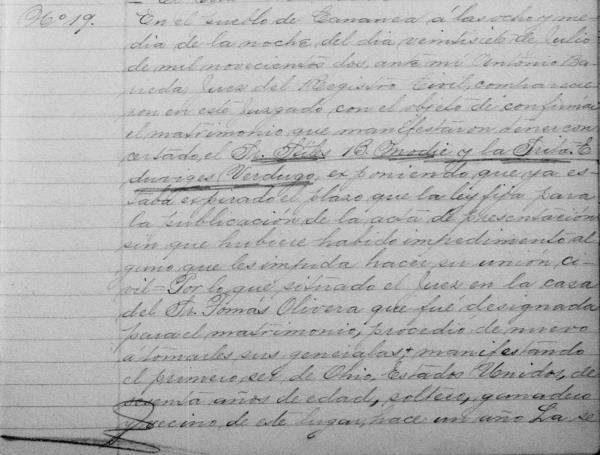 Nº 19. En el pueblo de Cananea á las ocho y me
dia de la noche, del dia veintisiete de Julio
de mil novecientos dos, ante mi Antonio Ba
rreda, Juez del Registro Civil, comparecie
ron en este Juzgado con el objeto de confirmar
el matrimonio que manifestaron tener con
certado, el Sr. B. y la Srita. E
duviges Verdugo, exponiendo, que ya es
taba expirado el plazo que la ley fija para
la publicación de la acta de presentación
sin que hubiere habido impedimento al
guno que les impida hacer su union ci
vil= Por lo que, situado el Juez en la casa
del Sr. Tomás Olivera que fué designada
para el matrimonio, procedio de nuevo
á tomarles sus generales, manifestando
el primero, ser de Ohio, Estados Unidos, de
años de edad, soltero, ganadero
y vecino de este lugar, hace un año La se